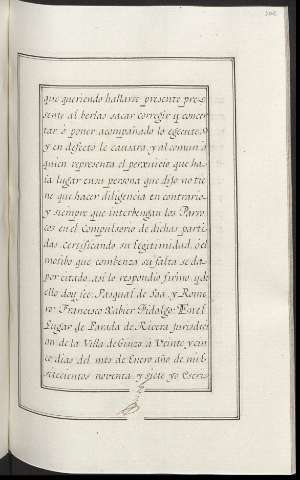 que queriendo hallarse presente pre-
sente al berlas sacar corregir y concer-
tar o poner acompañado lo egecute,
y en defecto le causara, y al comun ò
quien representa el perxuicio que ha-
ia lugar en su persona que dijo no tie
ne que hacer diligencia en contrario,
y siempre que interbengan los Parro
cos en el Compulsorio de dichas parti
das certificando su legitimidad, ò el
motibo que combenza su falta se da
por citado, asi lo respondio firmo, y de
ello doy fee: Pasqual de Saa, y Rome
ro: Francisco Xabier Fidalgo: En el
Lugar de Parada de Rivera jurisdici
on de la Villa de Ginzo à Veinte y cin
co dias del mes de Enero año de mil
setecientos noventa, y siete yo Escri